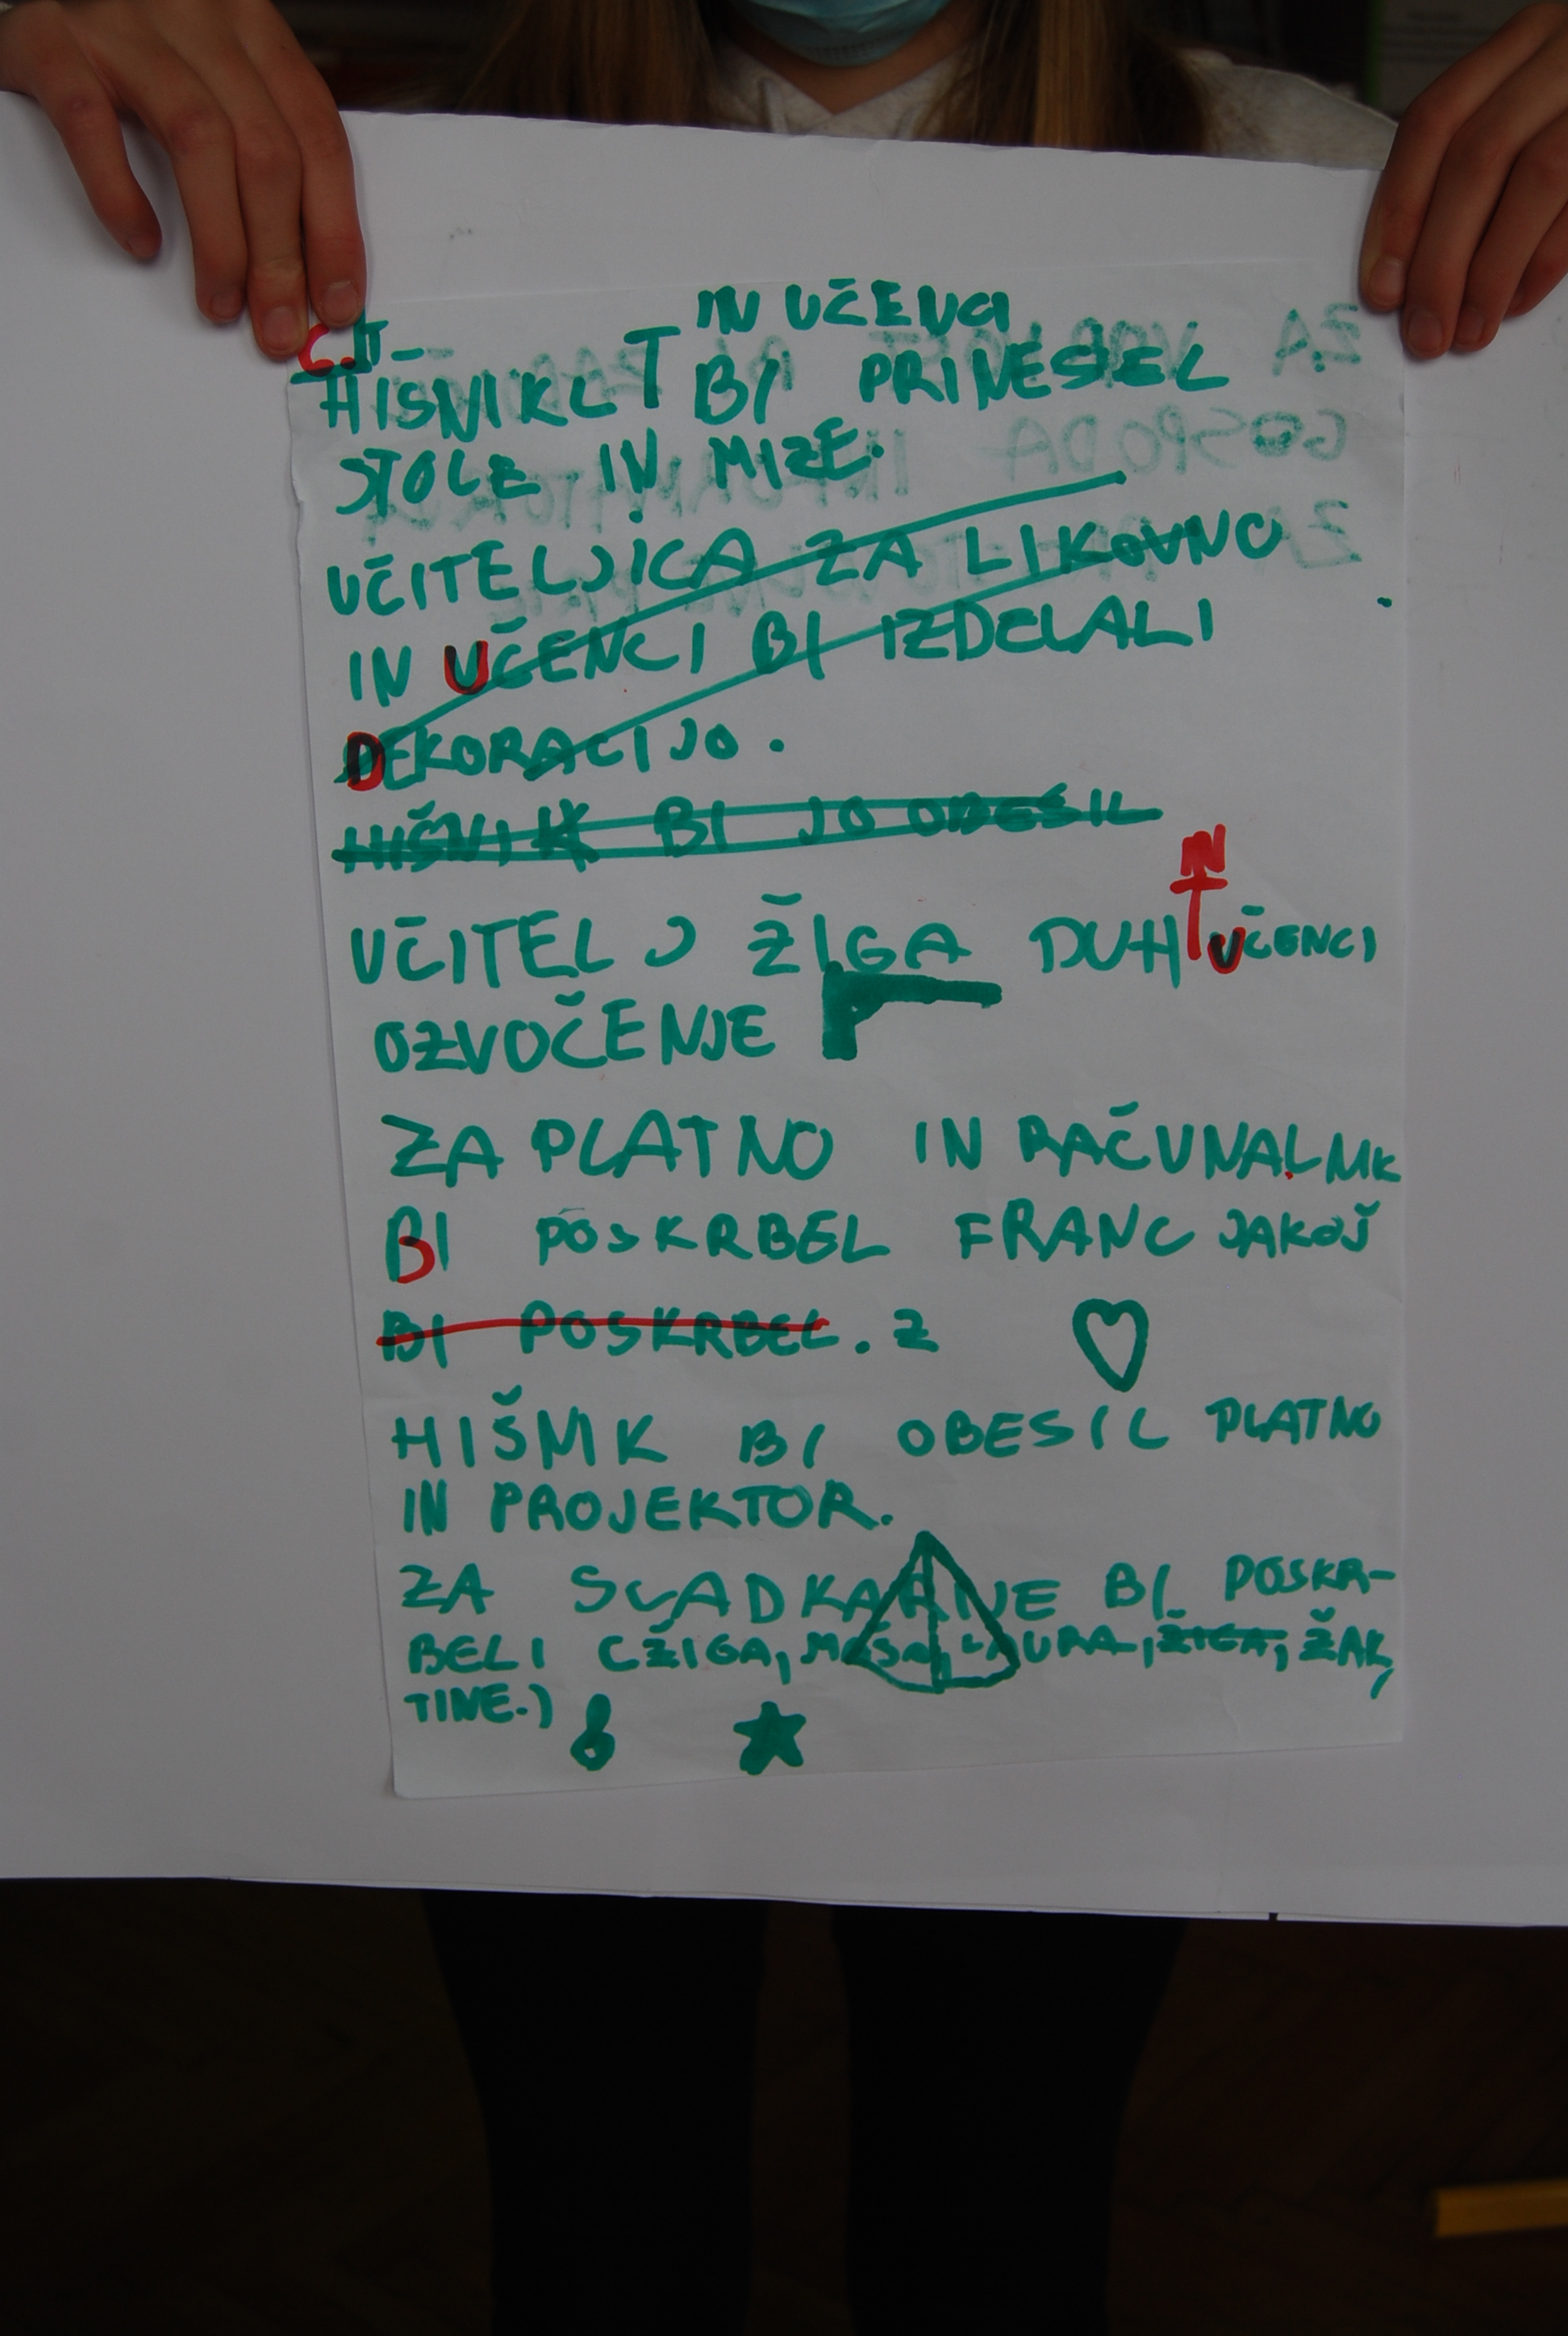 IN UČENCI
HIŠNIK BI PRINESEL
STOLE IN MIZE.
UČITELJICA ZA LIKOVNO
IN UČENCI BI IZDELALI
DEKORACIJO.
HIŠNIK BI JO OBESIL
IN
UČITELJ ŽIGA DUH UČENCI
OZVOČENJE
ZA PLATNO IN RAČUNALNIK
BI POSKRBEL FRANC JAKOŠ
BI POSKRBEL. Z
HIŠNIK BI OBESIL PLATNO
IN PROJEKTOR.
ZA SLADKARIJE BI POSKR-
BELI (ŽIGA, MAŠA, LAURA, ŽIGA, ŽAK,
TINE.)